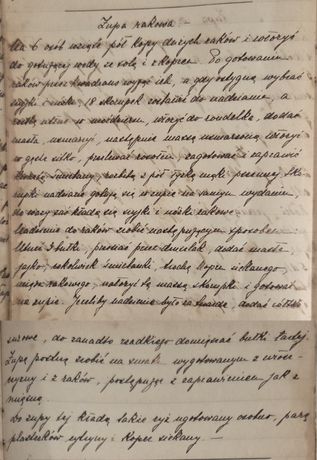 Zupa rakowa
Na 6 osób wziąść pół kopy dużych raków i wrzucić
do gotującej wody ze solą i koprem. Po gotowaniu
raków przez kwadrans wyjąć ich, a gdy ostygną wybrać
szyjki i nóżki, 18 skorupek zostawić do nadziania, a
resztę utłuc w moździerzu, włożyć do rondelka, dodać
masła, usmażyć, następnie masę usmażoną włożyć
w gęste sitko, przelewać rosołem, zagotować i zaprawić
śmietany, rozbitą z pół łyżką mąki pszennej. Sko-
rupki nadziane gotuje się w zupie na samem wydaniem,
do wazy zaś kładą się szyjki i nóżki rakowe.
Nadzienie do raków zrobić następującym sposobem:
bułki, przetrzeć przez druszlak, dodać masła,
jajko, cokolwiek śmietanki, trochę kopru siekanego,
rakowego, nałożyć tą masą skorupki i gotować
w zupie. Jeżeliby nadzienie było za twarde, dodać
surowe, do zanadto rzadkiego domięszać bułki tartej.
Zupę podług zrobić na smak wygotowanym z włosz-
czyzny i z raków, postępując z zaprawieniem jak z
mięsną.
Do zupy tej kładą także ryż ugotowany osobno, parę
plasterków cytryny i koper siekany. —